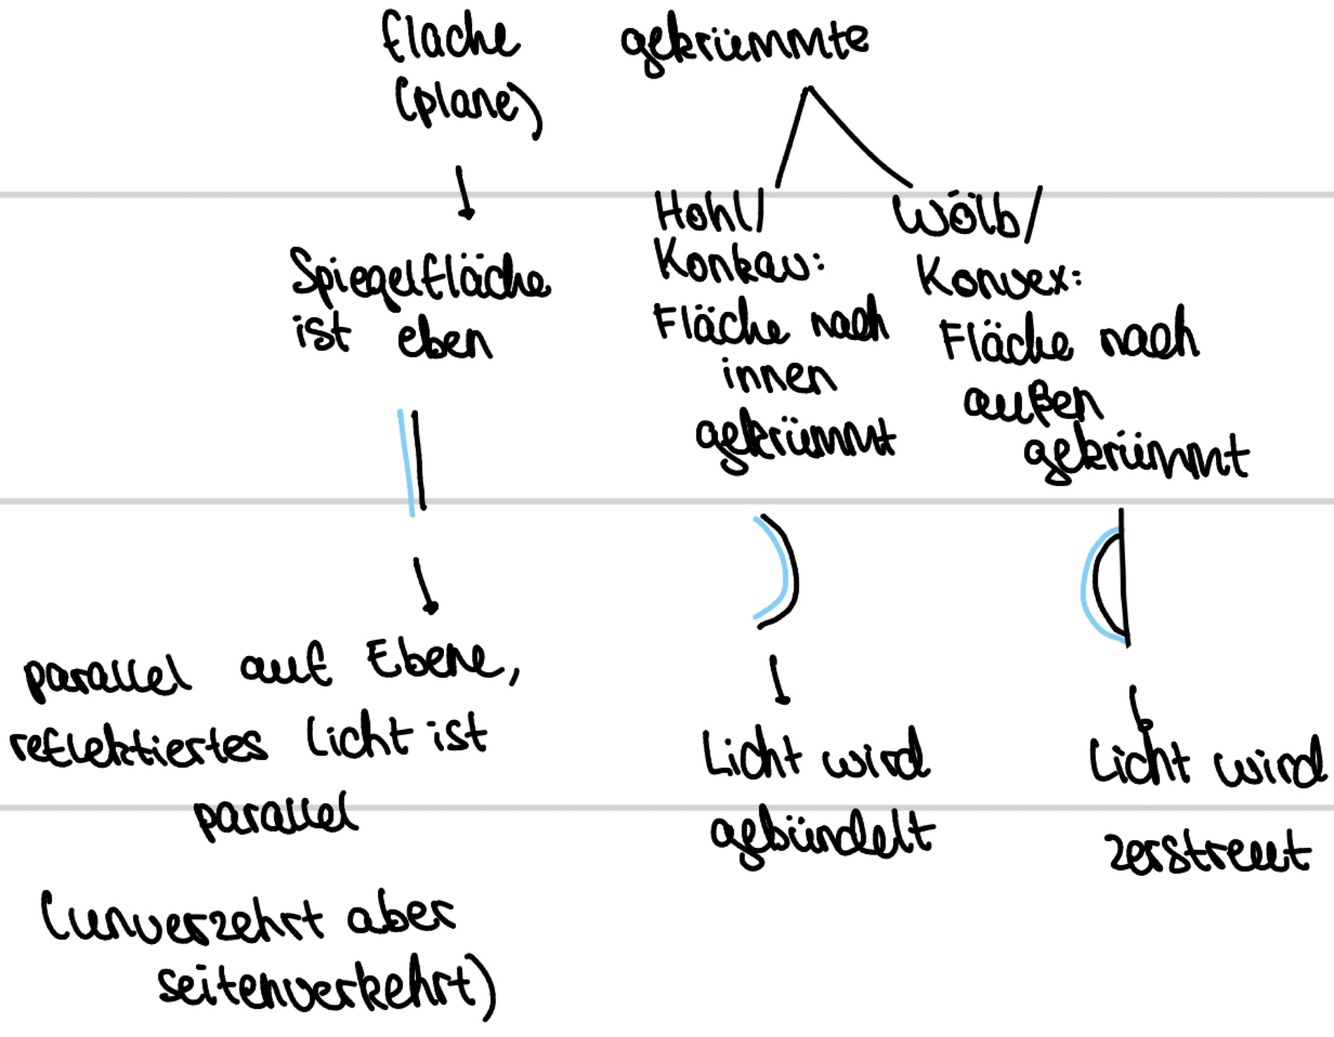 flache
(plane)
Spiegelfläche
ist eben
parallel auf Ebene,
reflektiertes Licht ist
parallel
(unverzehrt aber
seitenverkehrt)
gekrümmte
Hohl/
Konkav:
Fläche nach
innen
gekrümmt
Licht wird
gebündelt
Wölb/
Konvex:
Fläche nach
außen
gekrümmt
Licht wird
zerstreut